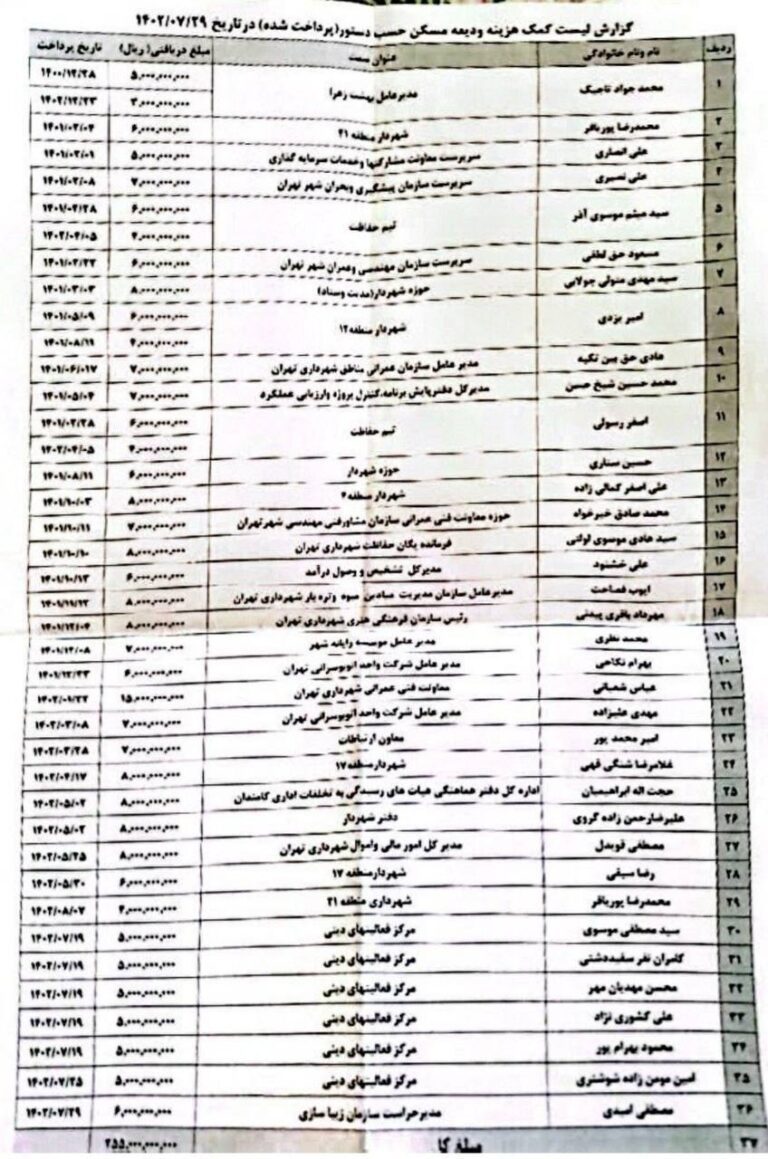 گزارش لیست کمک هزینه ودیعه مسکن حسب دستور(پرداخت شده) در تاریخ ۱۴۰۲/۰۷/۲۹
ردیف نام ونام خانوادگی عنوان سمت مبلغ دریافتی( ریال) تاریخ پرداخت
۱ محمد جواد تاجیک مدیرعامل بهشت زهرا ۵,۰۰۰,۰۰۰,۰۰۰ ۱۴۰۰/۱۲/۲۸
۳,۰۰۰,۰۰۰,۰۰۰ ۱۴۰۲/۱۲/۲۳
۲ محمدرضا پورباقر شهردار منطقه ۲۱ ۶,۰۰۰,۰۰۰,۰۰۰ ۱۴۰۱/۰۲/۰۴
۳ علی انصاری سرپرست معاونت مشارکتها وخدمات سرمایه گذاری ۵,۰۰۰,۰۰۰,۰۰۰ ۱۴۰۱/۰۲/۰۱
۴ علی نصیری سرپرست سازمان پیشگیری وبحران شهر تهران ۷,۰۰۰,۰۰۰,۰۰۰ ۱۴۰۱/۰۲/۰۸
۵ سید میثم موسوی آذر تیم حفاظت ۶,۰۰۰,۰۰۰,۰۰۰ ۱۴۰۱/۰۲/۲۸
۴,۰۰۰,۰۰۰,۰۰۰ ۱۴۰۲/۰۴/۰۵
۶ مسعود حق لطفی سرپرست سازمان مهندسی وعمران شهر تهران ۶,۰۰۰,۰۰۰,۰۰۰ ۱۴۰۱/۰۲/۲۲
۷ سید مهدی متولی جولایی حوزه شهردار(مدیت وستاد) ۸,۰۰۰,۰۰۰,۰۰۰ ۱۴۰۱/۰۳/۰۳
۸ امیر یزدی شهردار منطقه۱۲ ۶,۰۰۰,۰۰۰,۰۰۰ ۱۴۰۱/۰۵/۰۹
۴,۰۰۰,۰۰۰,۰۰۰ ۱۴۰۱/۰۸/۱۱
۹ هادی حق بین تکیه مدیر عامل سازمان عمرانی مناطق شهرداری تهران ۷,۰۰۰,۰۰۰,۰۰۰ ۱۴۰۱/۰۶/۰۱۷
۱۰ محمد حسین شیخ حسن مدیرکل دفترپایش برنامه،کنترل پروژه وارزیابی عملکرد ۷,۰۰۰,۰۰۰,۰۰۰ ۱۴۰۱/۰۵/۰۴
۱۱ اصغر رسولی تیم حفاظت ۶,۰۰۰,۰۰۰,۰۰۰ ۱۴۰۱/۰۲/۲۸
۴,۰۰۰,۰۰۰,۰۰۰ ۱۴۰۲/۰۴/۰۵
۱۲ حسین ستاری حوزه شهردار ۶,۰۰۰,۰۰۰,۰۰۰ ۱۴۰۱/۰۸/۱۱
۱۳ علی اصغر کمالی زاده شهردار منطقه۴ ۸,۰۰۰,۰۰۰,۰۰۰ ۱۴۰۱/۱۰/۰۳
۱۴ محمد صادق خیرخواه حوزه معاونت فنی عمرانی سازمان مشاورفنی مهندسی شهرتهران ۷,۰۰۰,۰۰۰,۰۰۰ ۱۴۰۱/۱۰/۱۱
۱۵ سید هادی موسوی لولتی فرمانده یگان حفاظت شهرداری تهران ۸,۰۰۰,۰۰۰,۰۰۰ ۱۴۰۱/۱۰/۱۰
۱۶ علی خشنود مدیرکل تشخیص و وصول درآمد ۶,۰۰۰,۰۰۰,۰۰۰ ۱۴۰۱/۱۰/۱۳
۱۷ ایوب فصاحت مدیرعامل سازمان مدیریت میادین میوه وتره بار شهرداری تهران ۸,۰۰۰,۰۰۰,۰۰۰ ۱۴۰۱/۱۱/۱۲
۱۸ مهرداد باقری رئیس سازمان فرهنگی هنری شهرداری تهران ۸,۰۰۰,۰۰۰,۰۰۰ ۱۴۰۱/۱۲/۰۴
۱۹ محمد نظری مدیر عامل موسسه رایانه شهر ۷,۰۰۰,۰۰۰,۰۰۰ ۱۴۰۱/۱۲/۰۸
۲۰ بهرام نکاحی مدیر عامل شرکت واحد اتوبوسرانی تهران ۶,۰۰۰,۰۰۰,۰۰۰ ۱۴۰۱/۱۲/۲۳
۲۱ عباس شعبانی معاونت فنی عمرانی شهرداری تهران ۱۵,۰۰۰,۰۰۰,۰۰۰ ۱۴۰۲/۰۱/۲۲
۲۲ مهدی علیزاده مدیر عامل شرکت واحد اتوبوسرانی تهران ۷,۰۰۰,۰۰۰,۰۰۰ ۱۴۰۲/۰۳/۰۸
۲۳ امیر محمد پور معاون ارتباطات ۷,۰۰۰,۰۰۰,۰۰۰ ۱۴۰۲/۰۳/۲۸
۲۴ غلامرضا شنگی قهی شهردارمنطقه۱۷ ۸,۰۰۰,۰۰۰,۰۰۰ ۱۴۰۲/۰۴/۱۷
۲۵ حجت اله ابراهیمیان اداره کل دفتر هماهنگی هیات های رسیدگی به تخلفات اداری کامندان ۸,۰۰۰,۰۰۰,۰۰۰ ۱۴۰۲/۰۵/۰۲
۲۶ علیرضارحمن زاده گروی دفتر شهردار ۸,۰۰۰,۰۰۰,۰۰۰ ۱۴۰۲/۰۵/۰۲
۲۷ مصطفی قویدل مدیر کل امور مالی واموال شهرداری تهران ۸,۰۰۰,۰۰۰,۰۰۰ ۱۴۰۲/۰۵/۲۵
۲۸ رضا سیفی شهردارمنطقه ۱۷ ۶,۰۰۰,۰۰۰,۰۰۰ ۱۴۰۲/۰۵/۳۰
۲۹ محمدرضا پورباقر شهرداری منطقه ۲۱ ۲,۰۰۰,۰۰۰,۰۰۰ ۱۴۰۲/۰۸/۰۷
۳۰ سید مصطفی موسوی مرکز فعالیتهای دینی ۵,۰۰۰,۰۰۰,۰۰۰ ۱۴۰۲/۰۷/۱۹
۳۱ کامران نفر سفیددشتی مرکز فعالیتهای دینی ۵,۰۰۰,۰۰۰,۰۰۰ ۱۴۰۲/۰۷/۱۹
۳۲ محسن مهدیان مهر مرکز فعالیتهای دینی ۵,۰۰۰,۰۰۰,۰۰۰ ۱۴۰۲/۰۷/۱۹
۳۳ علی کشوری نژاد مرکز فعالیتهای دینی ۵,۰۰۰,۰۰۰,۰۰۰ ۱۴۰۲/۰۷/۱۹
۳۴ محمود بهرام پور مرکز فعالیتهای دینی ۵,۰۰۰,۰۰۰,۰۰۰ ۱۴۰۲/۰۷/۱۹
۳۵ امین مومن زاده شوشتری مرکز فعالیتهای دینی ۵,۰۰۰,۰۰۰,۰۰۰ ۱۴۰۲/۰۷/۲۵
۳۶ مصطفی امیدی مدیرحراست سازمان زیبا سازی ۶,۰۰۰,۰۰۰,۰۰۰ ۱۴۰۲/۰۷/۲۹
۳۷ مبلغ کل ۲۵۵,۰۰۰,۰۰۰,۰۰۰